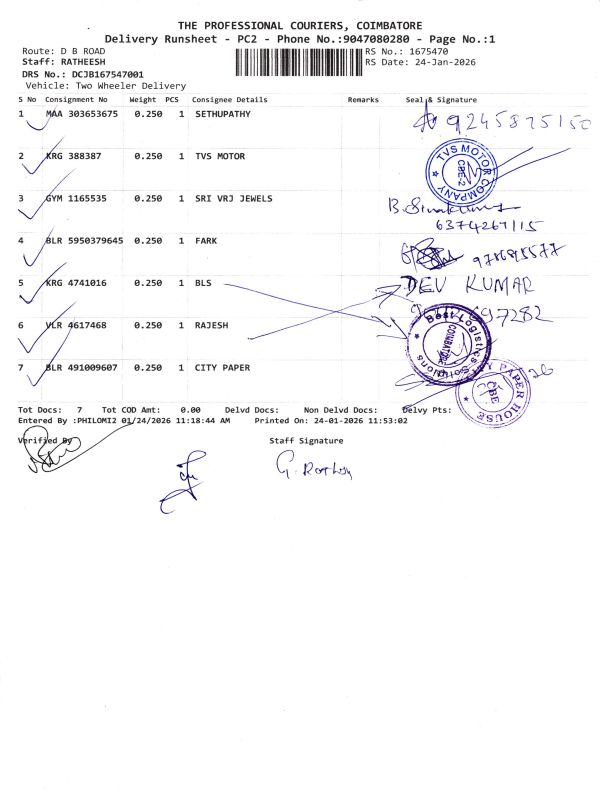 THE PROFESSIONAL COURIERS, COIMBATORE
Delivery Runsheet - PC2 - Phone No.:9047080280 - Page No.:1
Route: D B ROAD
RS No.: 1675470
Staff: RATHEESH
RS Date: 24-Jan-2026
DRS No.: DCJB167547001
Vehicle: Two Wheeler Delivery
S No Consignment No Weight PCS Consignee Details Remarks Seal & Signature
1 MAA 303653675 0.250 1 SETHUPATHY 9245875150
2 KRG 388387 0.250 1 TVS MOTOR
TVS MOTOR COMPANY CBE-2
3 GYM 1165535 0.250 1 SRI VRJ JEWELS
6374267115
4 BLR 5950379645 0.250 1 FARK
5 KRG 4741016 0.250 1 BLS DEV KUMAR
97282
6 VLR 4617468 0.250 1 RAJESH
Best Logistics Solutions COIMBATORE
7 BLR 491009607 0.250 1 CITY PAPER
PAPER HOUSE CBE
Tot Docs: 7 Tot COD Amt: 0.00 Delvd Docs: Non Delvd Docs: Delvy Pts:
Entered By :PHILOMI2 01/24/2026 11:18:44 AM Printed On: 24-01-2026 11:53:02
Verified By Staff Signature